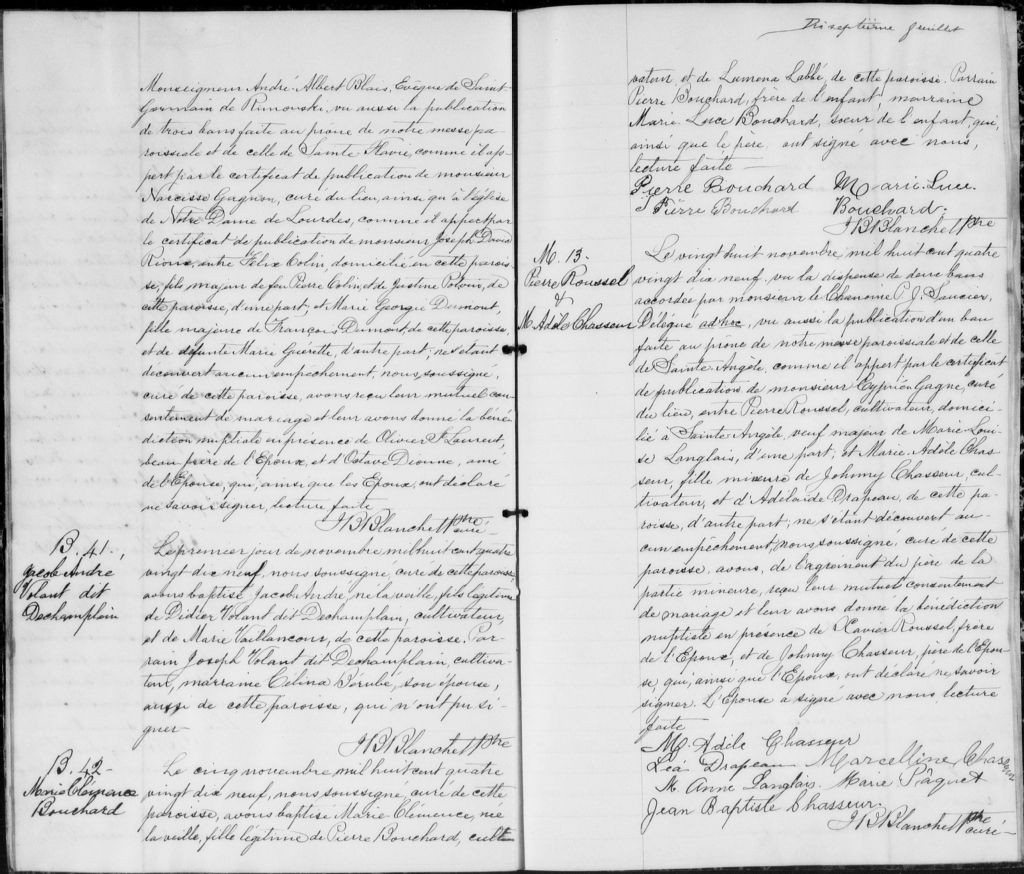 Monseigneur André Albert Blais, Evêque de Saint-
Germain de Rimouski, vu aussi la publication
de trois bans faite au prône de notre messe pa-
roissiale et de celle de Sainte Flavie, comme il ap-
pert par le certificat de publication de monsieur
Narcisse Gagnon, curé du lieu, ainsi qu'à l'église
de Notre Dame de Lourdes, comme il appert par
le certificat de publication de monsieur Joseph David
Rioux, entre Félix Colin, domicilié en cette parois-
se, fils majeur de feu Pierre Colin, et de Justine Potvin, de
cette paroisse, d'une part, et Marie Georgie Dumont,
fille majeure de François Dumont, de cette paroisse
et de défunte Marie Guérette, d'autre part; ne s'étant
découvert aucun empêchement, nous, soussigné,
curé de cette paroisse, avons reçu leur mutuel con-
sentement de mariage et leur avons donné la béné-
diction nuptiale en présence de Olivier St Laurent,
beau frère de l'Epoux, et d'Octave Dionne, ami
de l'Epouse, qui, ainsi que les Epoux, ont déclaré
ne savoir signer, lecture faite
J B Blanchet Ptre
curé-
B. 41-,
Jacob André
Volant dit
Dechamplain
Le premier jour de novembre mil huit cent quatre
vingt dix neuf, nous soussigné, curé de cette paroisse,
avons baptisé Jacob André, né la veille, fils légitime
de Didier Volant dit Dechamplain, cultivateur,
et de Marie Vaillancour, de cette paroisse. Par-
rain Joseph Volant dit Dechamplain, cultiva-
teur, marraine Célina Bérubé, son épouse,
aussi de cette paroisse, qui n'ont pu si-
gner
J B Blanchet Ptre
B. 42-
Marie Clémence
Bouchard
Le cinq novembre mil huit cent quatre
vingt dix neuf, nous soussigné, curé de cette
paroisse, avons baptisé Marie-Clémence, née
la veille, fille légitime de Pierre Bouchard, culti-
Dix septième feuillet
vateur et de Lumena Labbé, de cette paroisse. Parrain
Pierre Bouchard, frère de l'enfant, marraine
Marie-Luce Bouchard, soeur de l'enfant, qui,
ainsi que le père, ont signé avec nous,
lecture faite
Pierre Bouchard Marie-Luce
Pierre Bouchard Bouchard.
J B Blanchet Ptre
M. 13-
Pierre Roussel
&
M. Adèle Chasseur
Le vingt huit novembre, mil huit cent quatre
vingt dix neuf, vu la dispense de deux bans
accordée par monsieur le Chanoine P. J. Saucier,
Délégué ad hoc, vu aussi la publication d'un ban
faite au prône de notre messe paroissiale et de celle
de Sainte Angèle, comme il appert par le certificat
de publication de monsieur Cyprien Gagné, curé
du lieu, entre Pierre Roussel, cultivateur, domici-
lié à Sainte Angèle, veuf majeur de Marie-Loui-
se Langlais, d'une part, et Marie Adèle Chas-
seur, fille mineure de Johnny Chasseur, cul-
tivateur, et d'Adélaïde Drapeau, de cette pa-
roisse, d'autre part; ne s'étant découvert au-
cun empêchement, nous soussigné, curé de cette
paroisse, avons, de l'agrément du père de la
partie mineure, reçu leur mutuel consentement
de mariage et leur avons donné la bénédiction
nuptiale en présence de Xavier Roussel, frère
de l'Epoux, et de Johnny Chasseur, père de l'Epou-
se, qui, ainsi que l'Epoux, ont déclaré ne savoir
signer. L'Epouse a signé avec nous, lecture
faite
M. Adèle Chasseur
Léa Drapeau Marcelline Chasseur
M. Anne Langlais. Marie Pâquet
Jean Baptiste Chasseur.
J B Blanchet Ptre
curé-